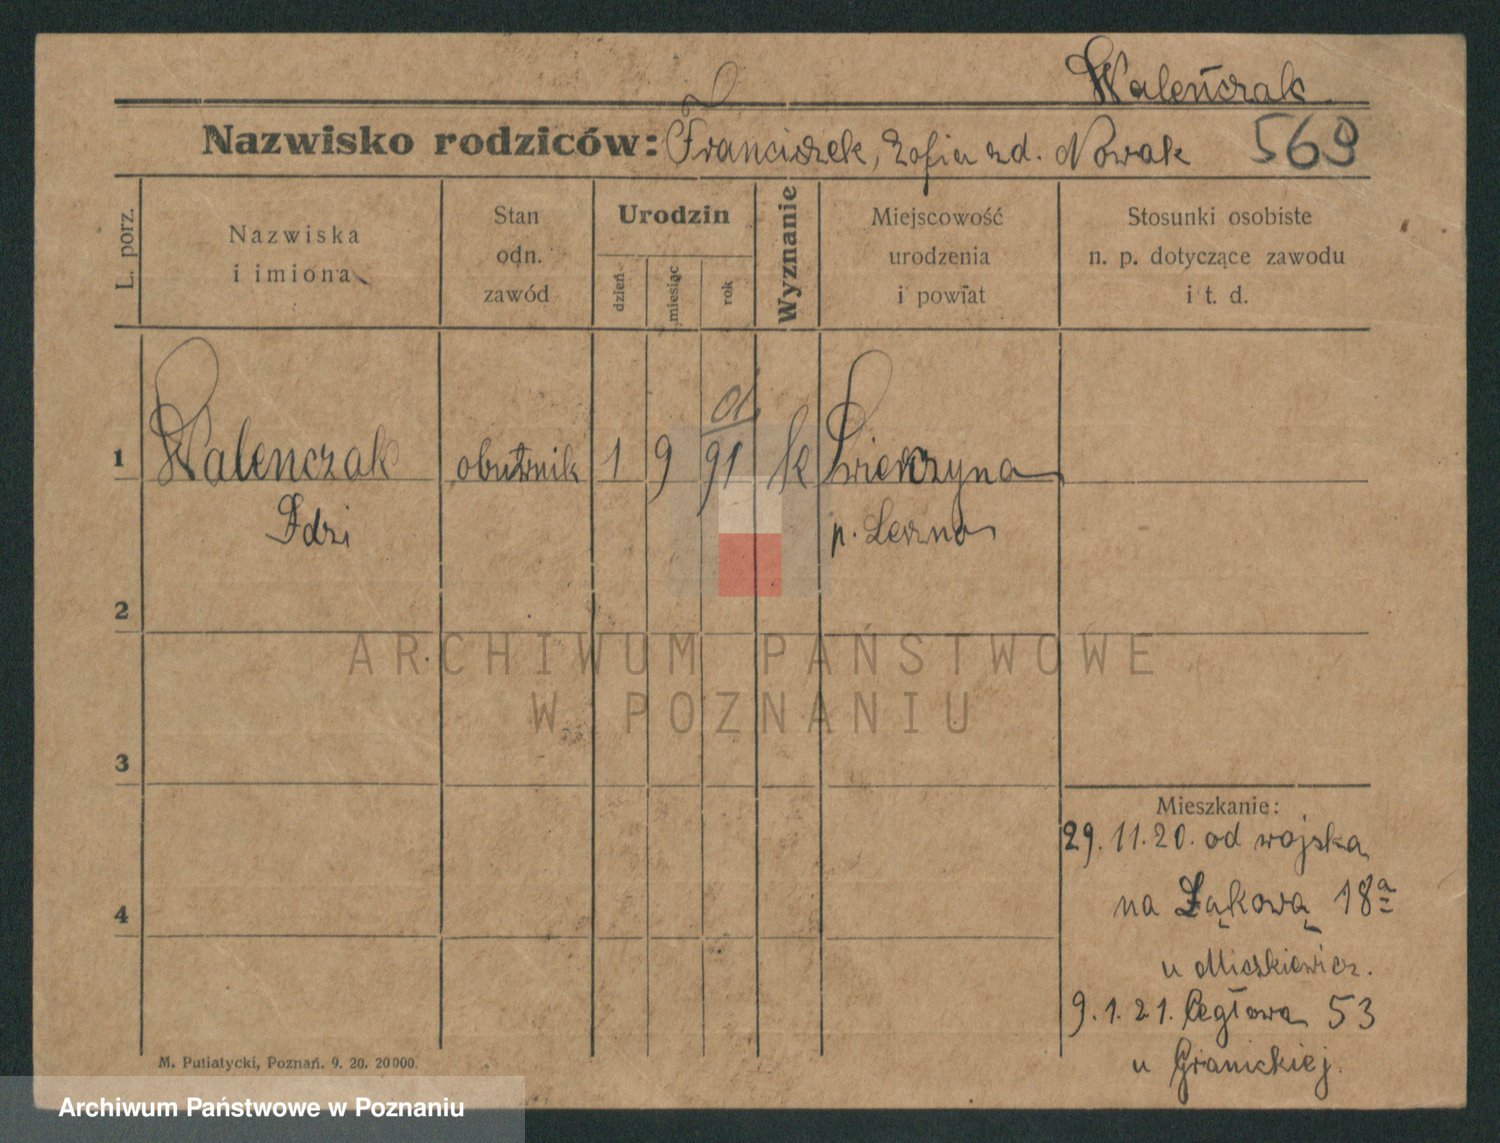 Waleńczak
Nazwisko rodziców: Franciszek, Zofia zd. Nowak 569
L. porz.
Nazwiska
i imiona
Stan
odn.
zawód
Urodzin
dzień
miesiąc
rok
Wyznanie
Miejscowość
urodzenia
i powiat
Stosunki osobiste
n. p. dotyczące zawodu
i t. d.
1 Walenczak obuwnik 1 9 91 k
Idzi
p. Leszno
2
3
4
ARCHIWUM PAŃSTWOWE
W POZNANIU
Mieszkanie:
29.11.20. od wojska
na Łąkową 18a
u Mickiewicz.
9.1.21. Cegłowa 53
u Granickiej.
M. Putiatycki, Poznań. 9. 20. 20000.
Archiwum Państwowe w Poznaniu